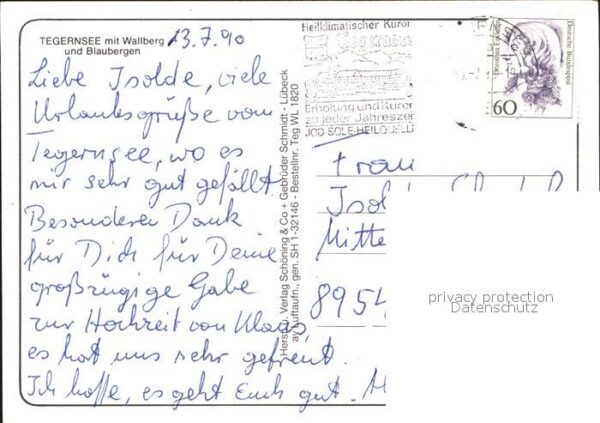 TEGERNSEE mit Wallberg
und Blaubergen
13.7.90
Liebe Isolde, viele
Urlaubsgrüße vom
Tegernsee, wo es
mir sehr gut gefällt.
Besonderen Dank
für Dich für Deine
großzügige Gabe
zur Hochzeit von Klaus,
es hat uns sehr gefreut.
Ich hoffe, es geht Euch gut.
Herst. u. Verlag Schöning & Co + Gebrüder Schmidt - Lübeck
Luftaufn., gen. SH 1-32146 - Bestellnr. Teg WL 1820
Heilklimatischer Kuror
Erholung und Kuren
zu jeder Jahreszeit
JOD-SOLE-HEILQUELL
Deutsche Bundespost
60
Frau
Mitte
8954
privacy protection
Datenschutz